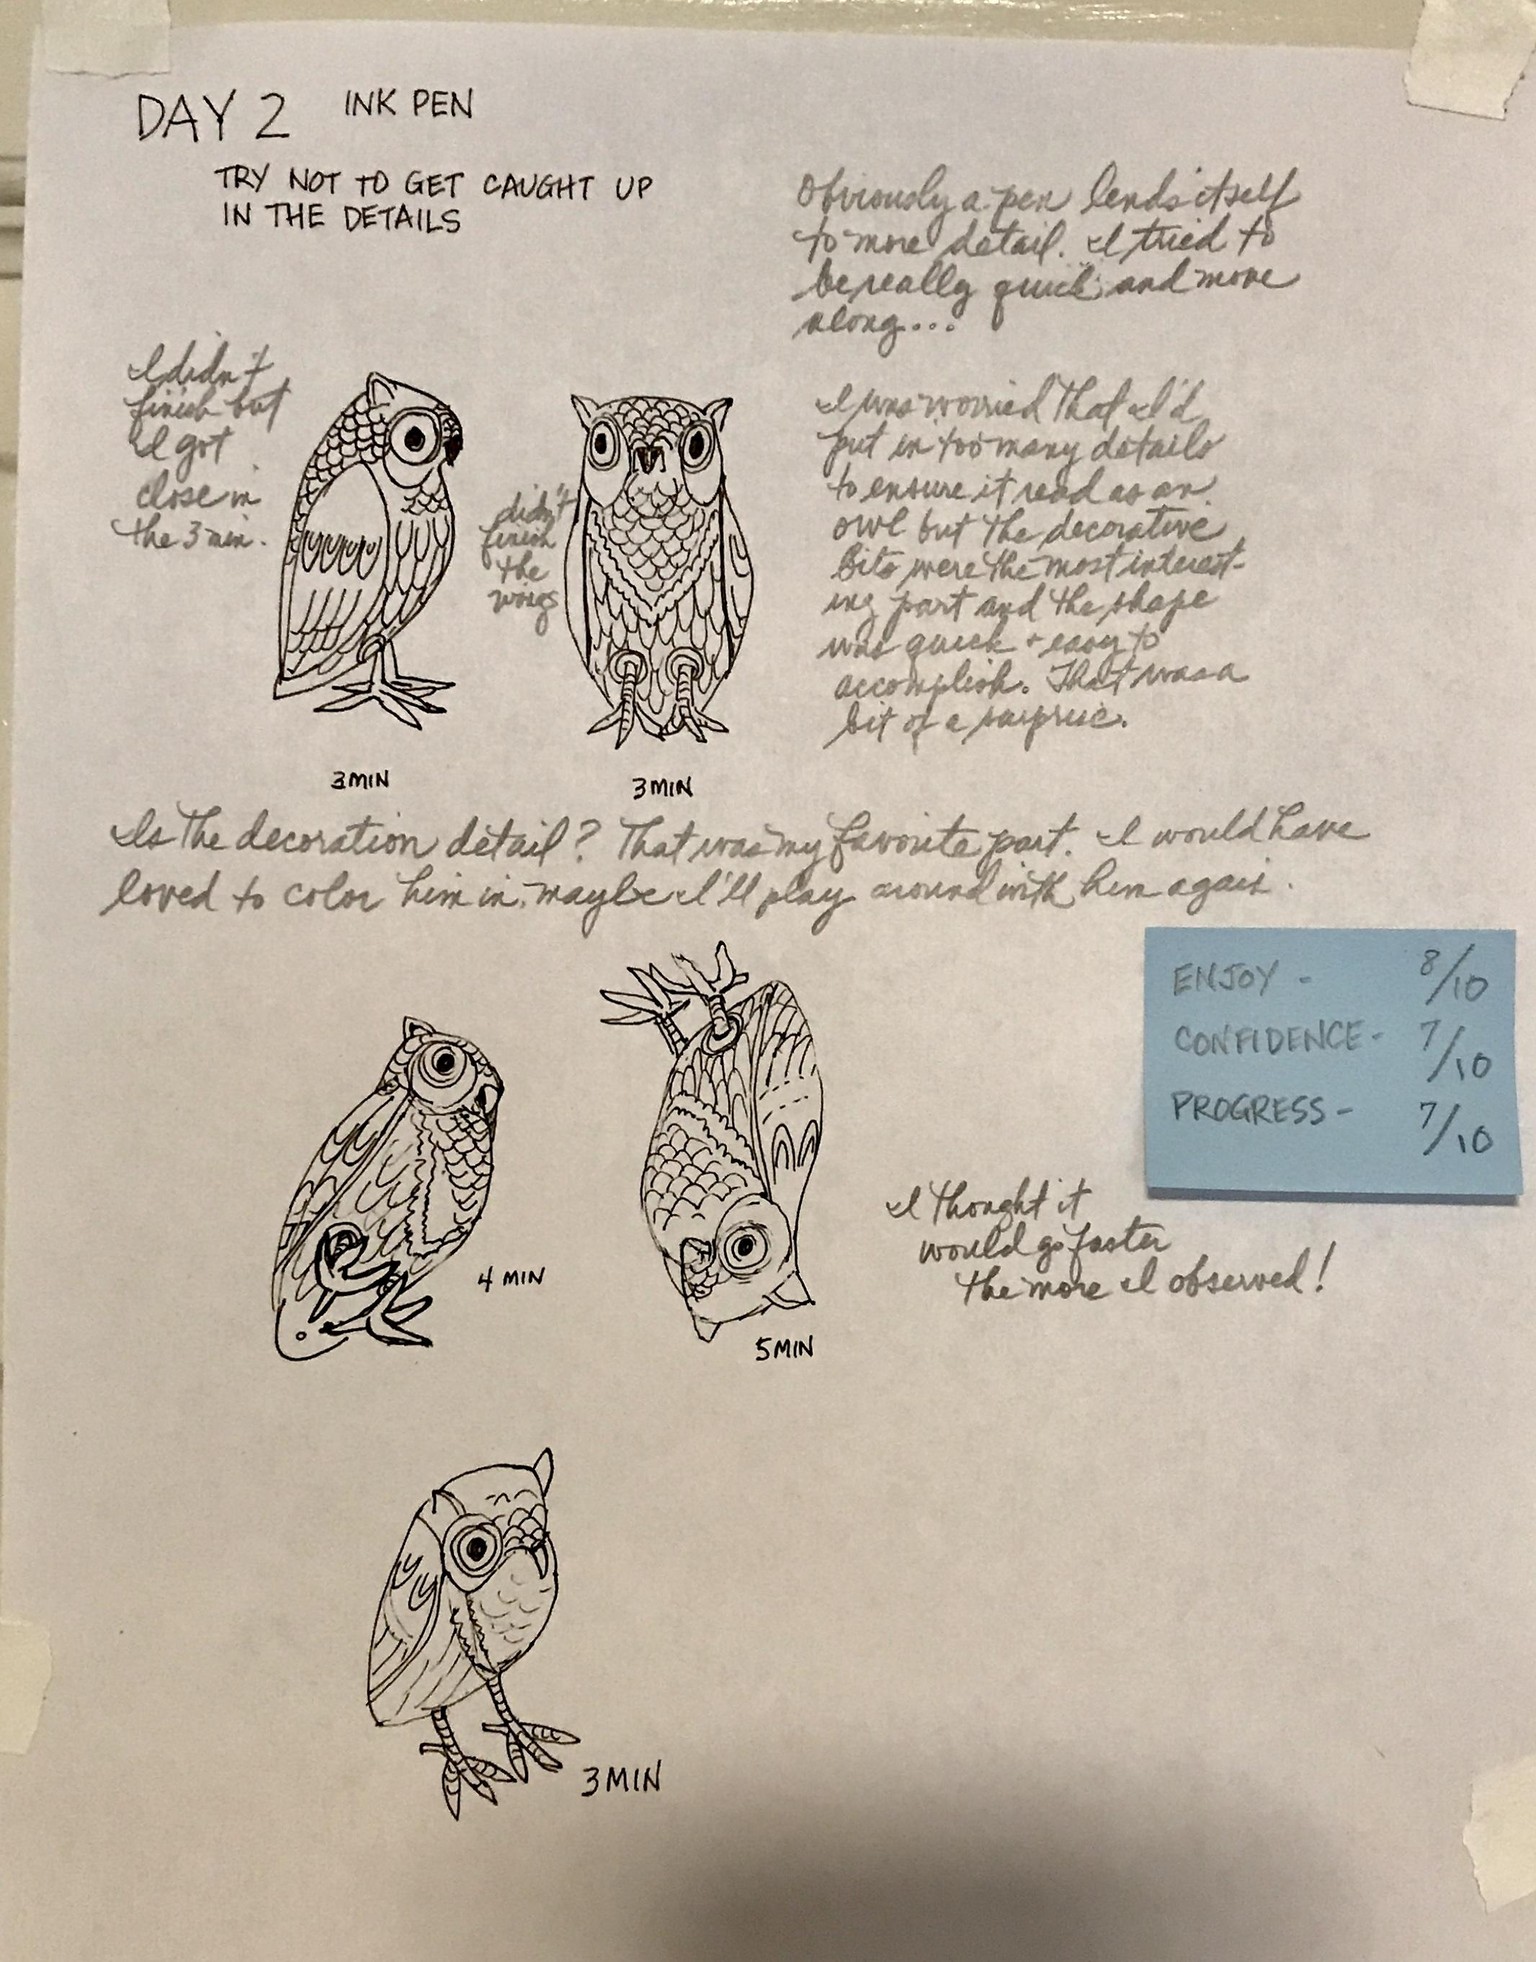 DAY 2 INK PEN
TRY NOT TO GET CAUGHT UP
IN THE DETAILS
Obviously a pen lends itself
to more detail. I tried to
be really quick and move
along...
I didn't
finish but
I got
close in
the 3 min.
didn't
finish
the
wings
I was worried that I'd
put in too many details
to ensure it read as an
owl but the decorative
bits were the most interest-
ing part and the shape
was quick + easy to
accomplish. That was a
bit of a surprise.
3 MIN
3 MIN
Is the decoration detail? That was my favorite part. I would have
loved to color him in. maybe I'll play around with him again.
ENJOY - 8/10
CONFIDENCE - 7/10
PROGRESS - 7/10
4 MIN
5 MIN
I thought it
would go faster
the more I observed!
3 MIN